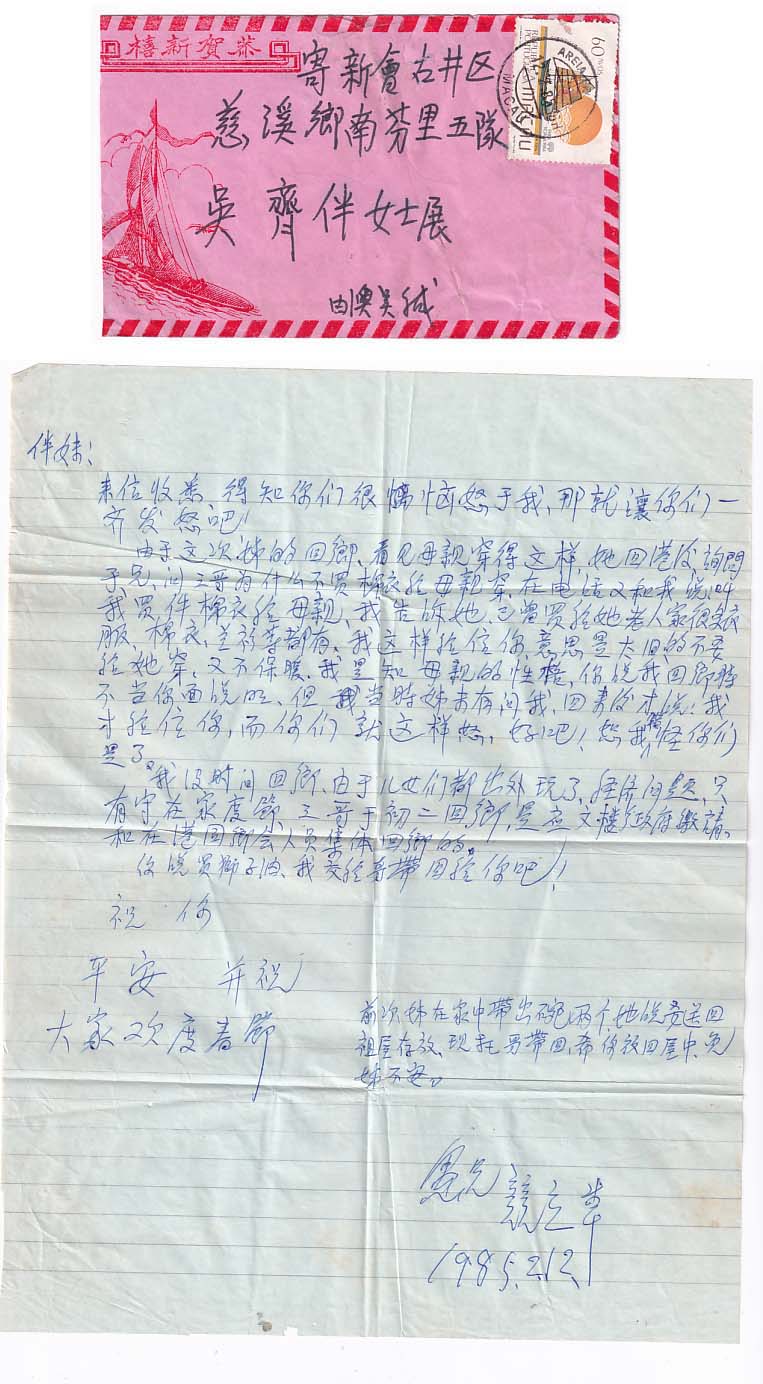 禧新賀恭
寄新會古井区
慈溪鄉南芬里五隊
吳齊伴女士展
由澳吴緘
60 AVOS
REPÚBLICA PORTUGUESA
MACAU
MACAU
伴妹：
来信收悉 得知你们很惱怒于我，那就讓你们一
齐发怒吧！
由于这次姊的回鄉，看见母親穿得这样，她回港后，詢問
于兄，问三哥为什么不買棉衣给母親穿，在电话又和我说，叫
我買件棉衣给母親，我告訴她，已曾買给她老人家很多衣
服，棉衣，都有，我这样给信你，意思是太旧的不要
给她穿，又不保暖，我是知母親的性格，你说我回鄉時
不当你面说的，但我当時姊未有问我，回来后才说，我
才给信你，而你们就这样怒，好吧！恕我怪你们
是了。
我没时间回鄉，由于儿女们都出外玩了，经济问题，只
有守在家度節，三哥于初二回鄉，是应文楼政府邀請，
和在港同鄉会人员集体回鄉的。
你说買獅子油，我交给哥帶回给你吧！
祝你
平安 并祝
大家欢度春節
前次姊在家中帶出碗两个，她说要送回
祖屋存放，现托男帶回，希你放回屋中，免
姊不安。
愚兄
1985.2.12.